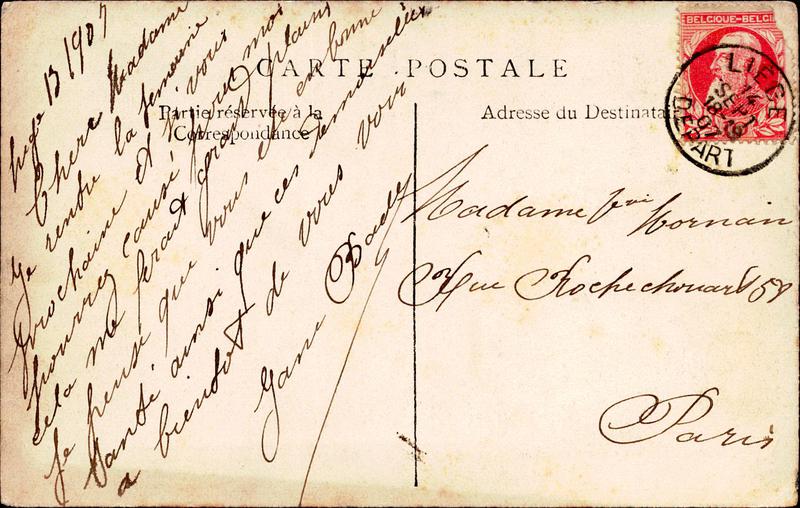 CARTE POSTALE
Partie réservée à la
Correspondance
Adresse du Destinatai
BELGIQUE-BELGI
LIEGE
14
SEPT
18-19
07
DEPART
13 1907
Chere Madame
Je rentre la semaine
prochaine et si vous
pourrez causé pour moi
cela me ferait grand plaisir
Je pense que vous et en bonne
santé ainsi que ces demoiselles
a bientot de vous voir
Jane
Madame
Rue Rochechouart 58
Paris